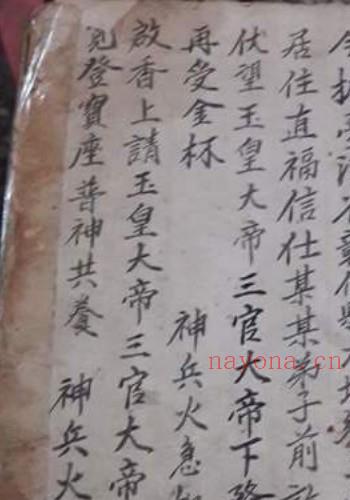 居住直福信仕某某弟子前
伏望玉皇大帝三官大帝下
再受金杯 神兵火急
啟香上請玉皇大帝三官大帝
見登寶座普神共養 神兵火
nayona.cn